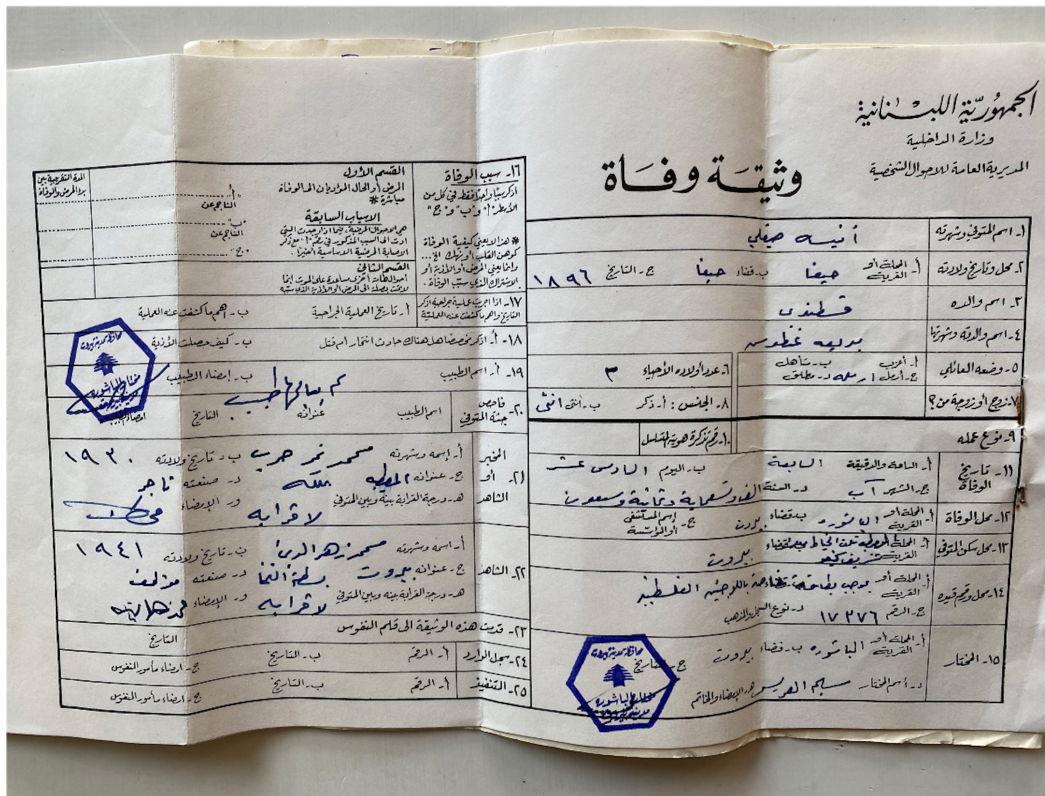 الجمهورية اللبنانية
وزارة الداخلية
المديرية العامة للاحوال الشخصية
وثيقة وفاة
١- اسم المتوفي وشهرته أنيسه صقلي
٢- محل وتاريخ ولادته أ- المحلة أو القرية حيفا ب- قضاء حيفا ج- التاريخ ١٨٩٦
٣- اسم والده قسطندي
٤- اسم والدته وشهرتها بديعه غطس
٥- وضعه العائلي أ- أعزب ب- متأهل
ج- أرمل ارمله د- مطلق
٦- عدد أولاده الأحياء ٣
٧- زوج أو زوجة من؟
٨- الجنس: أ- ذكر ب- أنثى انثى
٩- نوع عمله
١٠- رقم تذكرة هويته المتسلسل
١١- تاريخ الوفاة أ- الساعة والدقيقة السابعة ب- اليوم السادس عشر
ج- الشهر آب د- السنة الف وتسعماية وثمانية وسبعون
١٢- محل الوفاة أ- المحلة أو القرية الباشوره ب- قضاء بيروت ج- اسم المستشفى أو المؤسسة
١٣- محل سكن المتوفي أ- المحلة القرية ب- قضاء بيروت
١٤- محل ورقم قيده أ- المحلة أو القرية بموجب بطاقة باللاجئين الفلسطينيين
ج- الرقم ١٧٣٧٦ د- نوع السجل والمذهب
١٥- المختار أ- المحلة أو القرية الباشوره ب- قضاء بيروت ج- التاريخ
د- اسم المختار سليم العريس هـ- الإمضاء والخاتم
١٦- سبب الوفاة
أذكر سببا واحدا فقط في كل من
الأسطر "أ" و"ب" و"ج"
* هذا لا يعني كيفية الوفاة
كوهن القلب أو نزيف الخ...
وانما يعني المرض أو الأذية أو
الاشتراك الذي سبب الوفاة.
القسم الأول
المرض أو الحال المؤديان الى الوفاة
مباشرة *
الاسباب السابقة
هي الاحوال المرضية، فيما اذا وجدت، التي
ادت الى السبب المذكور في سطر "أ" مع ذكر
الاصابة المرضية الاساسية أخيرا.
القسم الثاني
"أ"
الناجم عن
"ب"
الناجم عن
"ج"
المدة التقريبية بين
بدء المرض والوفاة
١٧- اذا اجريت عملية جراحية اذكر
التاريخ واهم ما كشفت عنه العملية
أ- تاريخ العملية الجراحية ب- أهم ما كشفت عنه العملية
١٨- أ- اذكر مخصصا هل هناك حادث انتحار أم قتل ب- كيف حصلت الأذية
١٩- أ- اسم الطبيب لم يعالجها طبيب ب- إمضاء الطبيب
٢٠- فاحص جثة المتوفي اسم الطبيب عنوانه التاريخ
٢١- المخبر أو الشاهد أ- اسمه وشهرته محمد نمر حرب ب- تاريخ ولادته ١٩٣٠
ج- عنوانه ملكه د- صنعته تاجر
هـ- درجة القرابة بينه وبين المتوفي لا قرابه و- الإمضاء
٢٢- الشاهد أ- اسمه وشهرته محمد زهر الدين ب- تاريخ ولادته ١٩٤١
ج- عنوانه بيروت بسطة التحتا د- صنعته موظف
هـ- درجة القرابة بينه وبين المتوفي لا قرابه و- الإمضاء
٢٣- قدمت هذه الوثيقة الى قلم النفوس التاريخ
٢٤- سجل الوارد أ- الرقم ب- التاريخ ج- امضاء مأمور النفوس
٢٥- التنفيذ أ- الرقم ب- التاريخ ج- امضاء مأمور النفوس